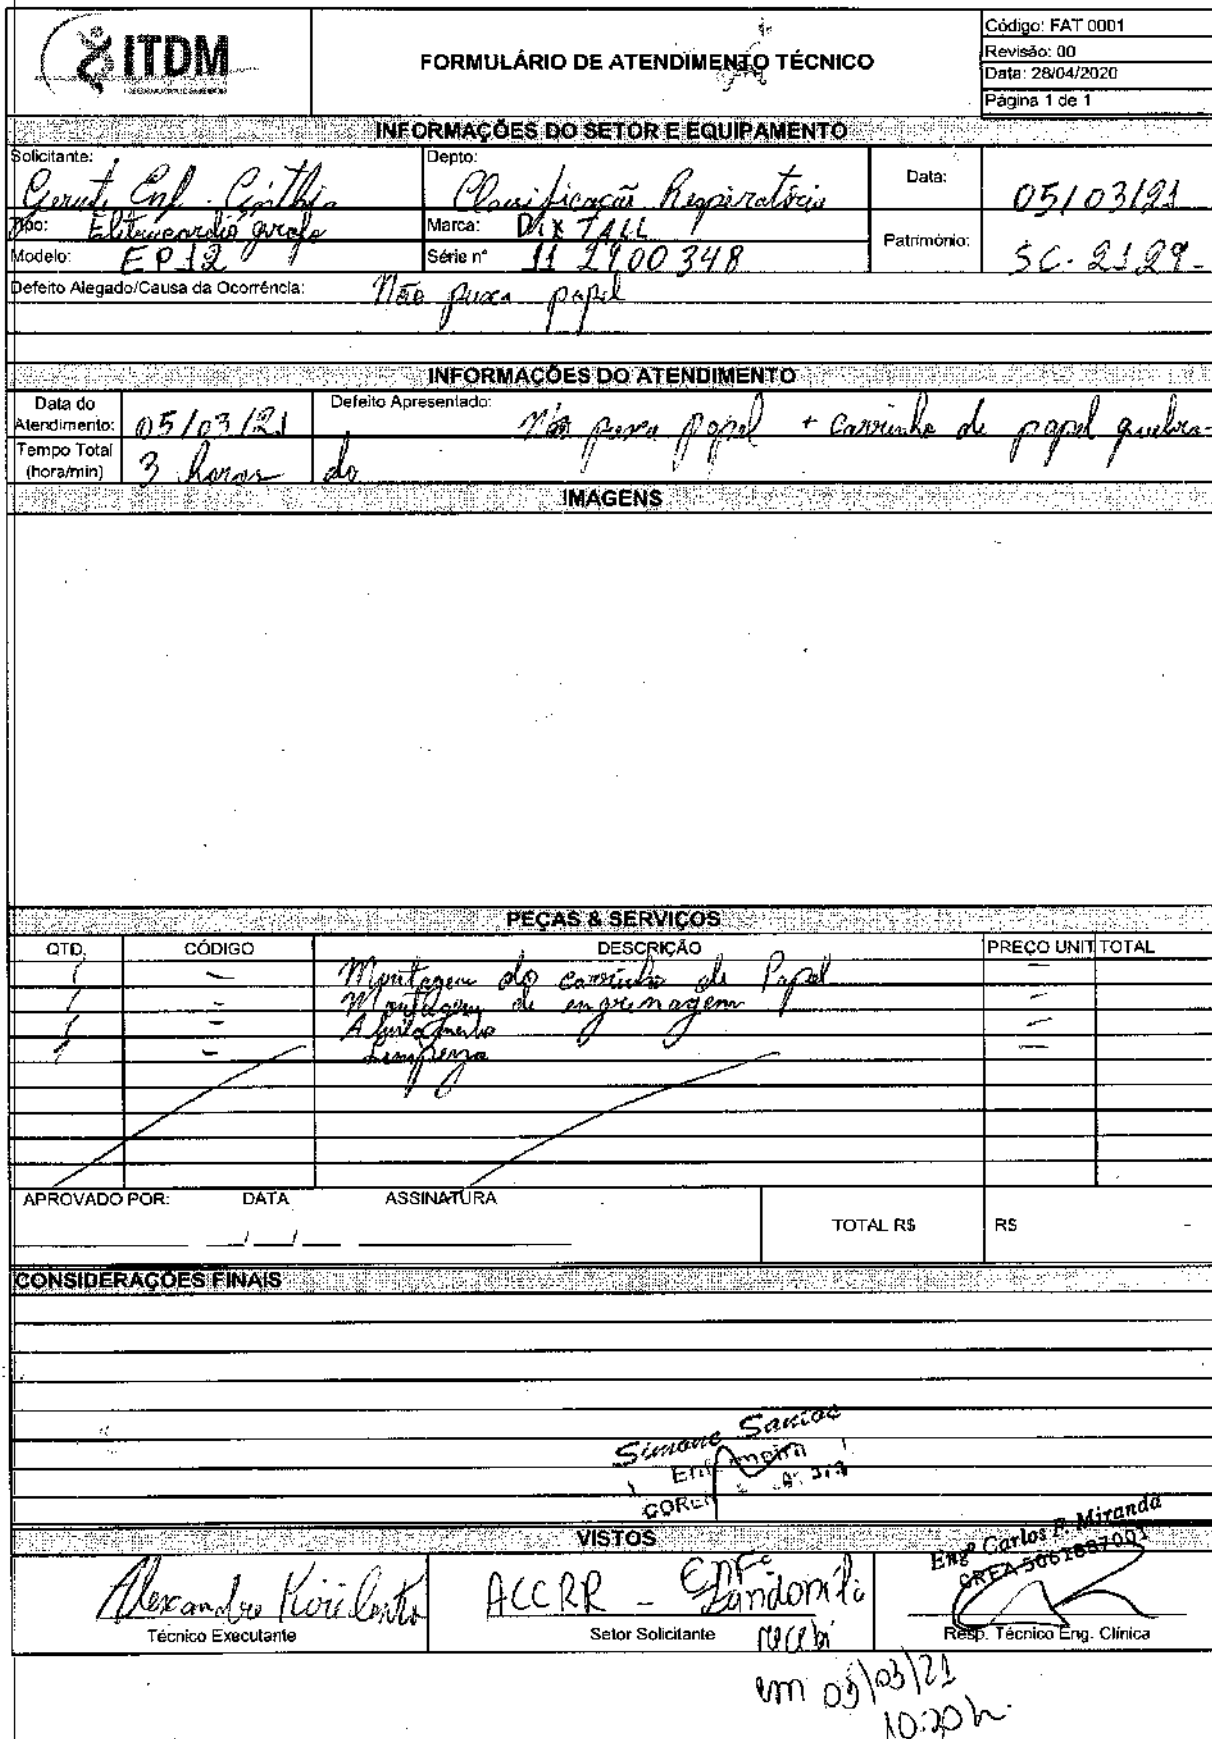 ITDM
FORMULÁRIO DE ATENDIMENTO TÉCNICO
Código: FAT 0001
Revisão: 00
Data: 28/04/2020
Página 1 de 1
INFORMAÇÕES DO SETOR E EQUIPAMENTO
Solicitante: Gerent. Enf. Cinthia
Depto: Classificação Respiratória
Data: 05/03/21
Tipo: Eletrocardiógrafo
Marca: DIXTALL
Patrimônio: SC-2129-
Modelo: EP12
Série nº 11 2900348
Defeito Alegado/Causa da Ocorrência: Não puxa papel
INFORMAÇÕES DO ATENDIMENTO
Data do Atendimento: 05/03/21
Defeito Apresentado: Não puxa papel + carrinho de papel quebra-
Tempo Total (hora/min) 3 horas
do
IMAGENS
PEÇAS & SERVIÇOS
QTD. CÓDIGO DESCRIÇÃO PREÇO UNIT TOTAL
1 - Montagem do carrinho de Papel -
1 - Montagem de engrenagem -
1 - -
1 - Limpeza -
APROVADO POR: DATA ASSINATURA
__/__/__
TOTAL R$ R$ -
CONSIDERAÇÕES FINAIS
Simone Santos
Enfermeira
COREN
VISTOS
Engº Carlos F. Miranda
CREA 5061887001
Alexandre
Técnico Executante
ACCRR - Enfª
Setor Solicitante
recebi
em 05/03/21
10:20h.
Resp. Técnico Eng. Clínica